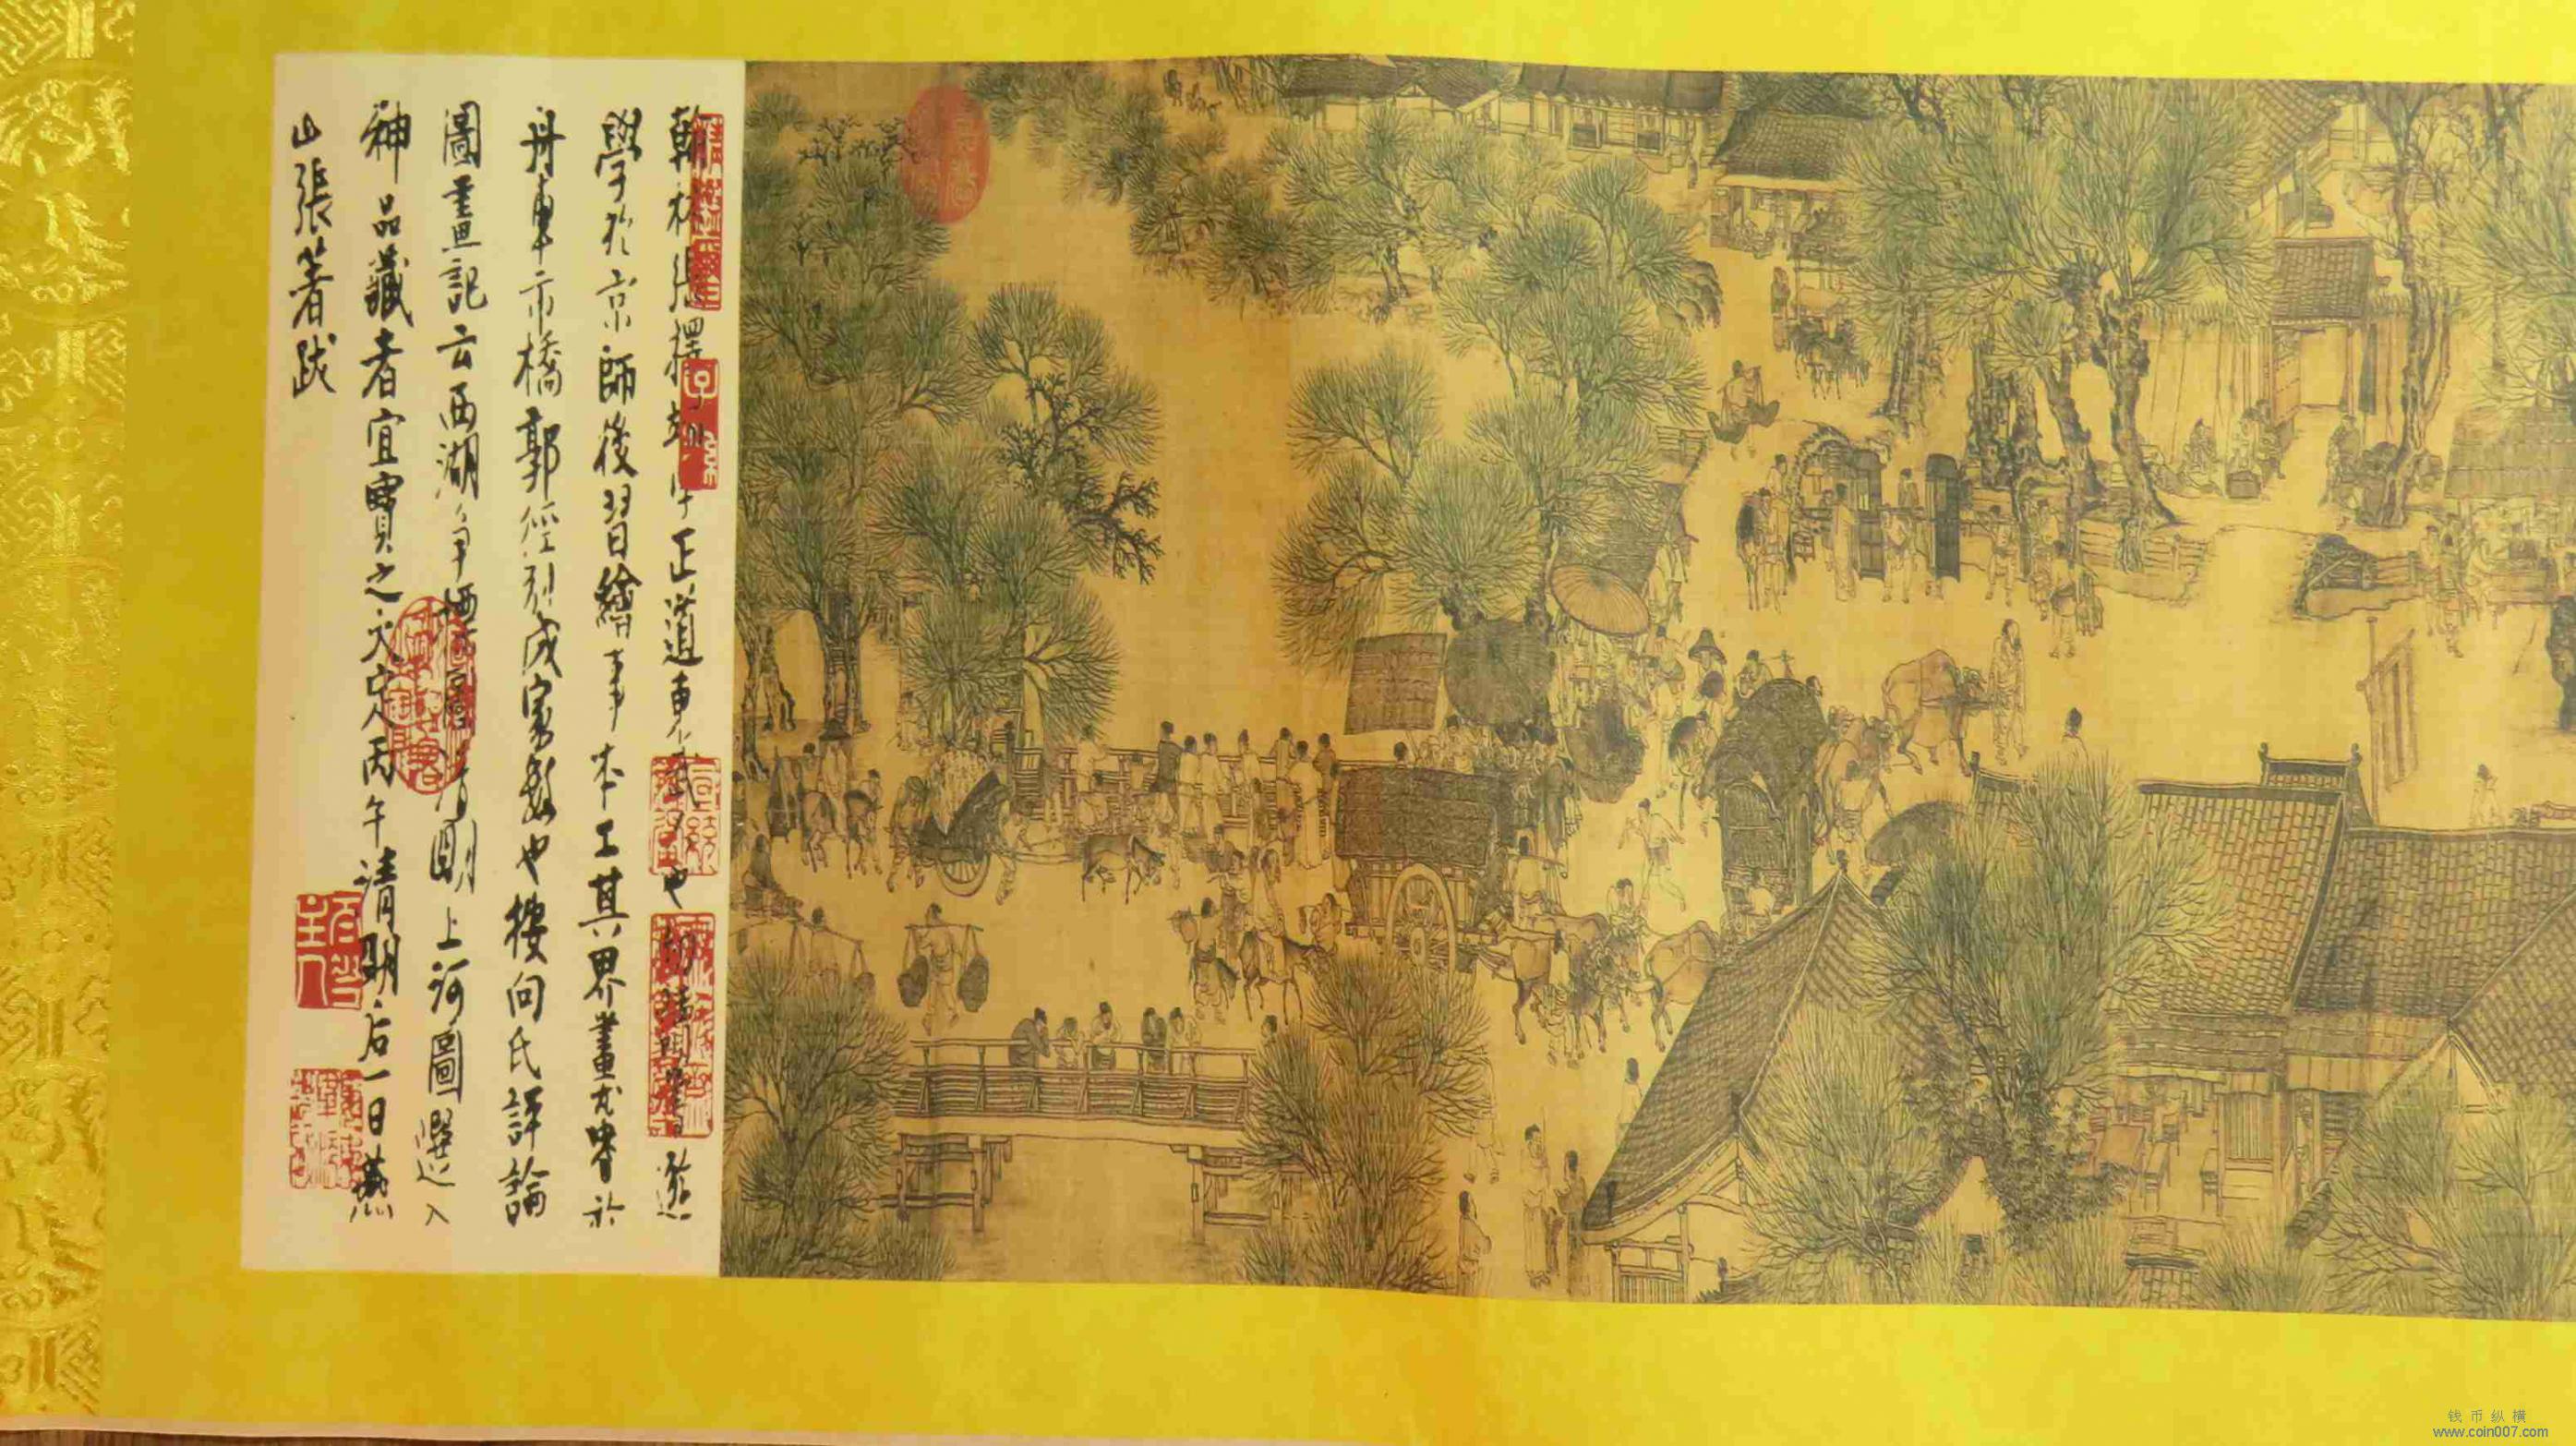 翰林張擇端字正道東武人也幼讀書遊
學於京師後習繪事本工其界畫尤嗜於
舟車市橋郭徑別成家數也按向氏評論
圖畫記云西湖爭標圖清明上河圖選入
神品藏者宜寶之大定丙午清明后一日燕
山張著跋
钱币纵横
www.coin007.com